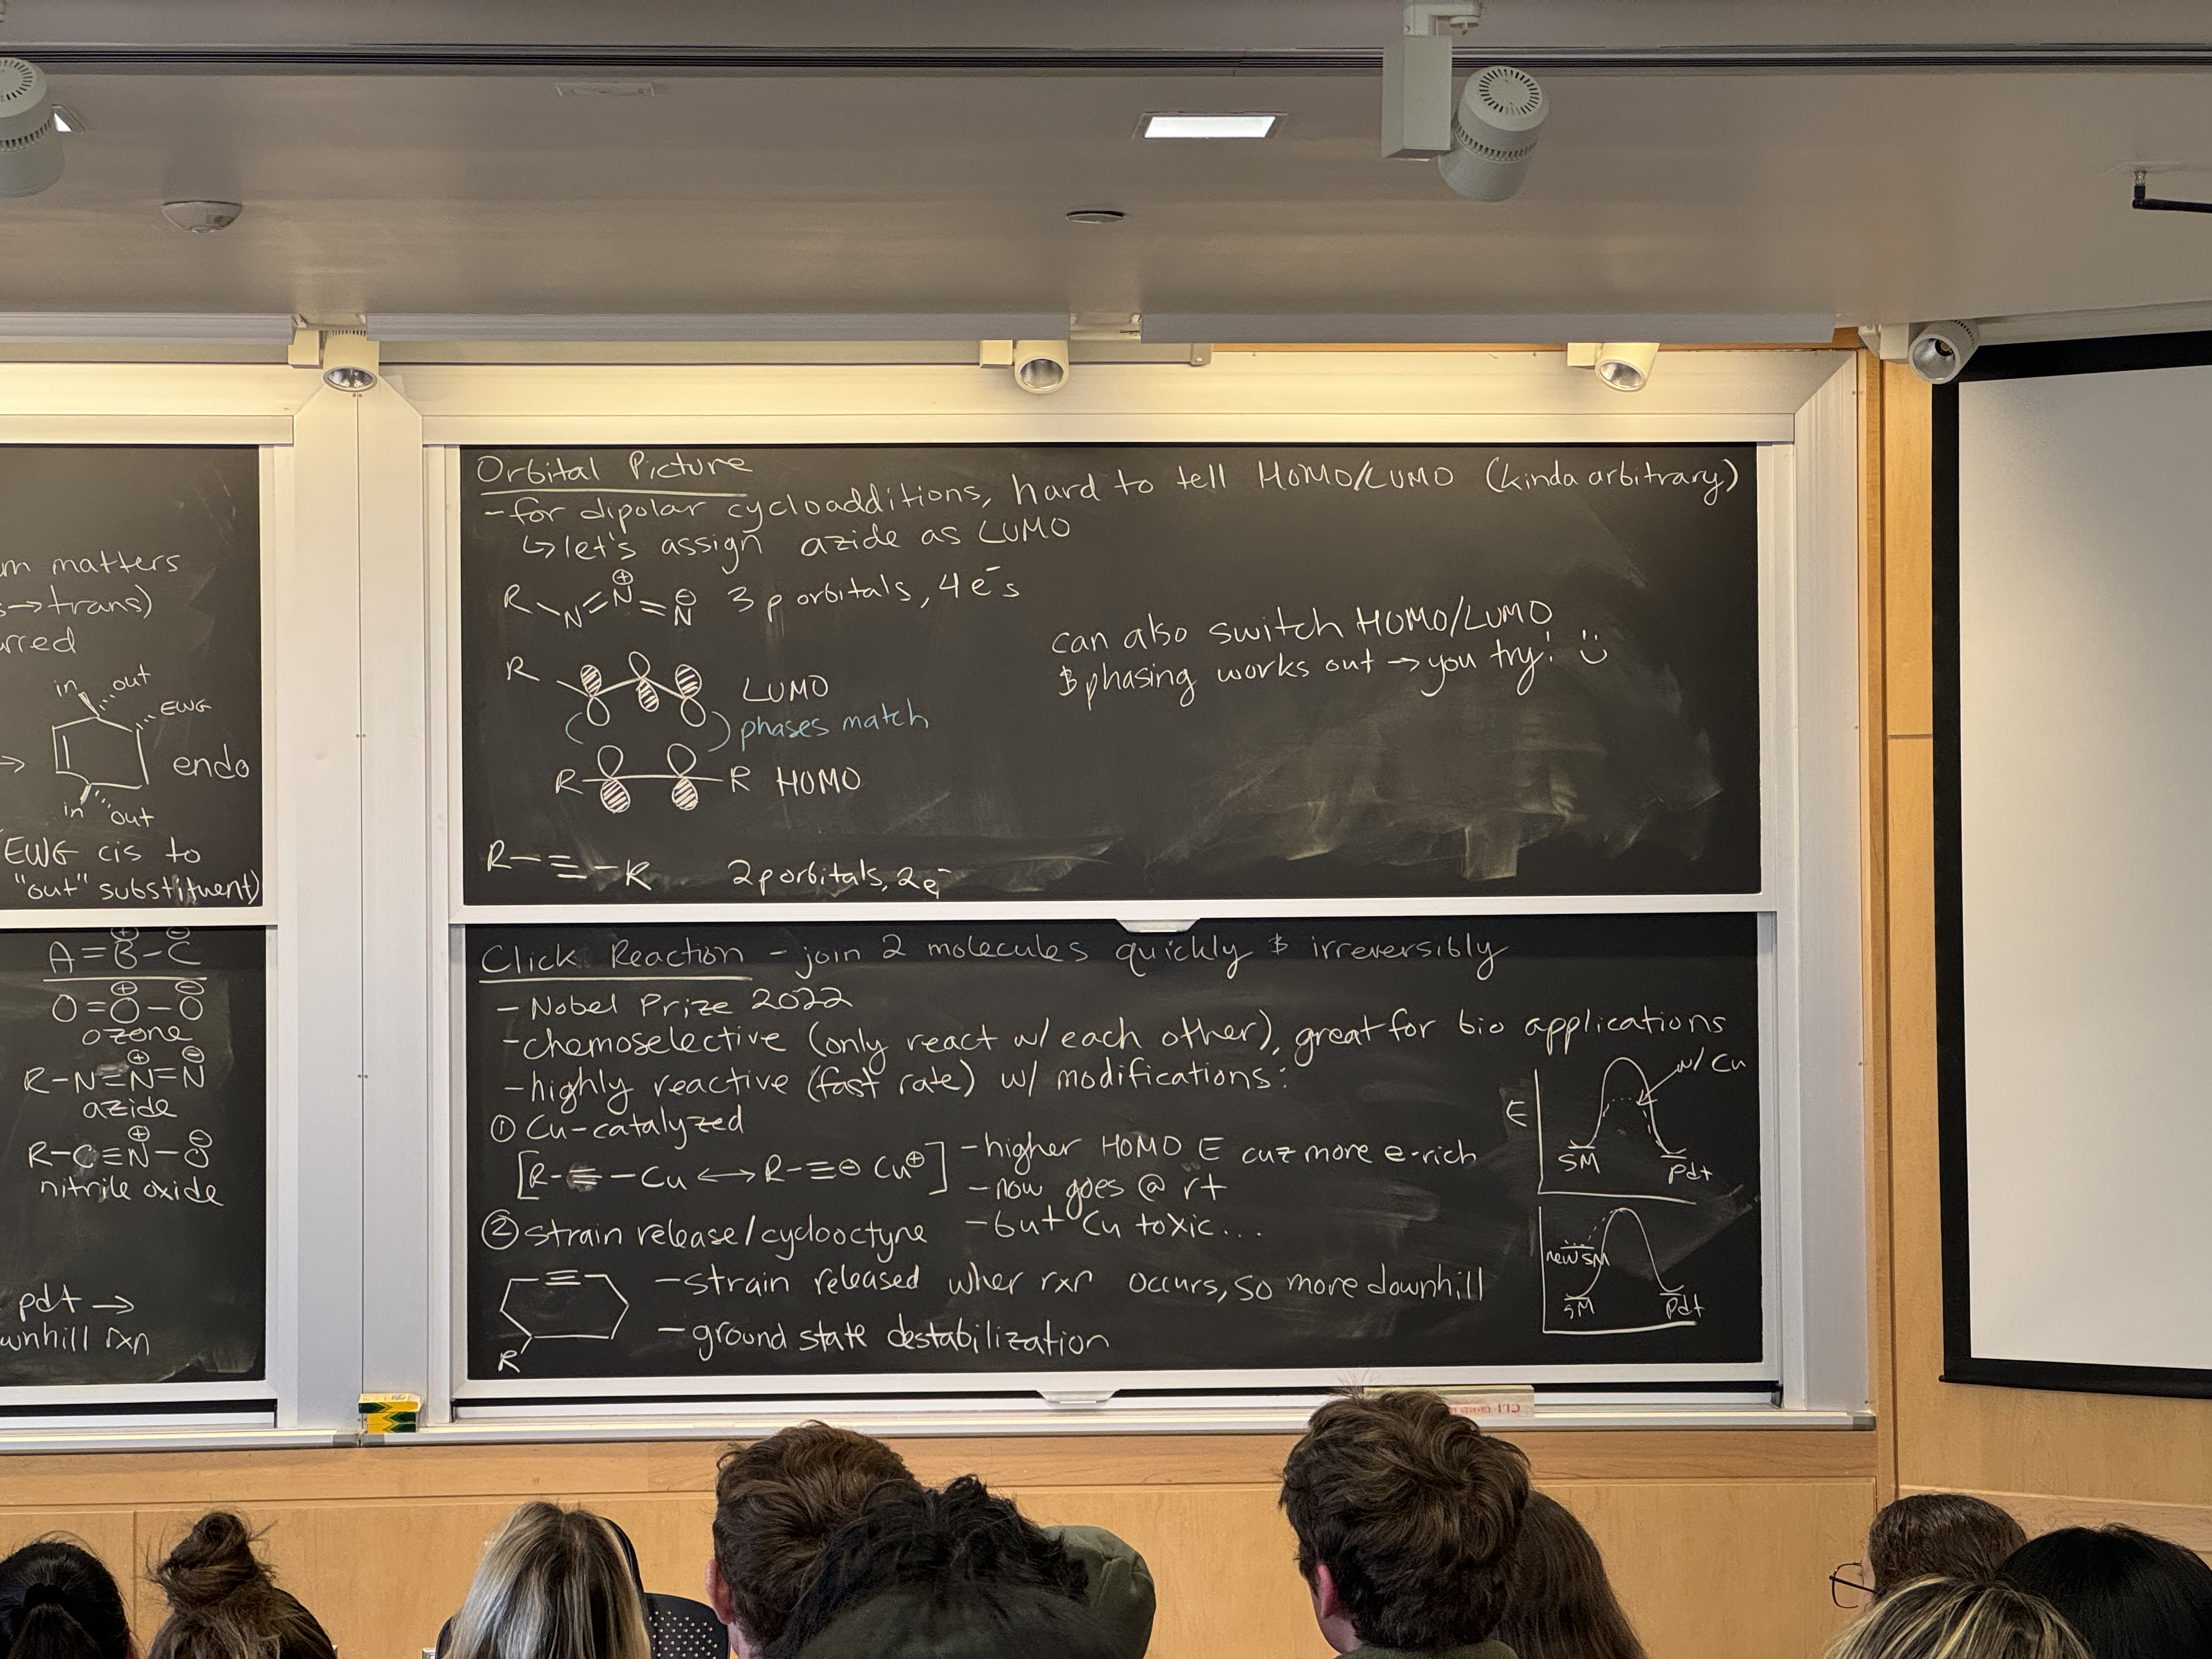 m matters
s→trans)
rred
in out
EWG
→ endo
in out
EWG cis to
"out" substituent)
A=B-C
⊕ ⊖
O=O-O
⊕ ⊖
ozone
R-N=N=N
⊕ ⊖
azide
R-C≡N-O
⊕ ⊖
nitrile oxide
pdt →
wnhill rxn
Orbital Picture
- for dipolar cycloadditions, hard to tell HOMO/LUMO (kinda arbitrary)
↳ let's assign azide as LUMO
R-N=N=N 3 p orbitals, 4 e⁻s
⊕ ⊖
R LUMO
( ) phases match
R R HOMO
R-≡-R 2 p orbitals, 2 e⁻
can also switch HOMO/LUMO
& phasing works out → you try! :)
Click Reaction - join 2 molecules quickly & irreversibly
- Nobel Prize 2022
- chemoselective (only react w/ each other), great for bio applications
- highly reactive (fast rate) w/ modifications:
① Cu-catalyzed
[R-≡-Cu ↔ R-≡⊖ Cu⊕]
- higher HOMO E cuz more e-rich
- now goes @ rt
- but Cu toxic...
② strain release/cyclooctyne
R
- strain released when rxn occurs, so more downhill
- ground state destabilization
w/ Cu
E
SM
pdt
new SM
SM
pdt